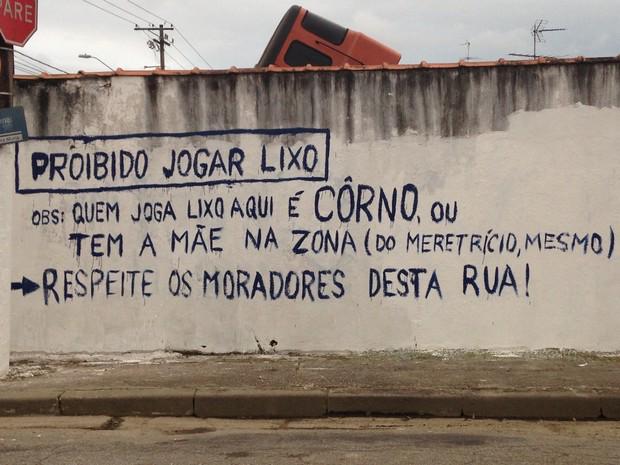 PARE
PROIBIDO JOGAR LIXO
OBS: QUEM JOGA LIXO AQUI É CÔRNO, OU
TEM A MÃE NA ZONA (DO MERETRÍCIO, MESMO)
RESPEITE OS MORADORES DESTA RUA!